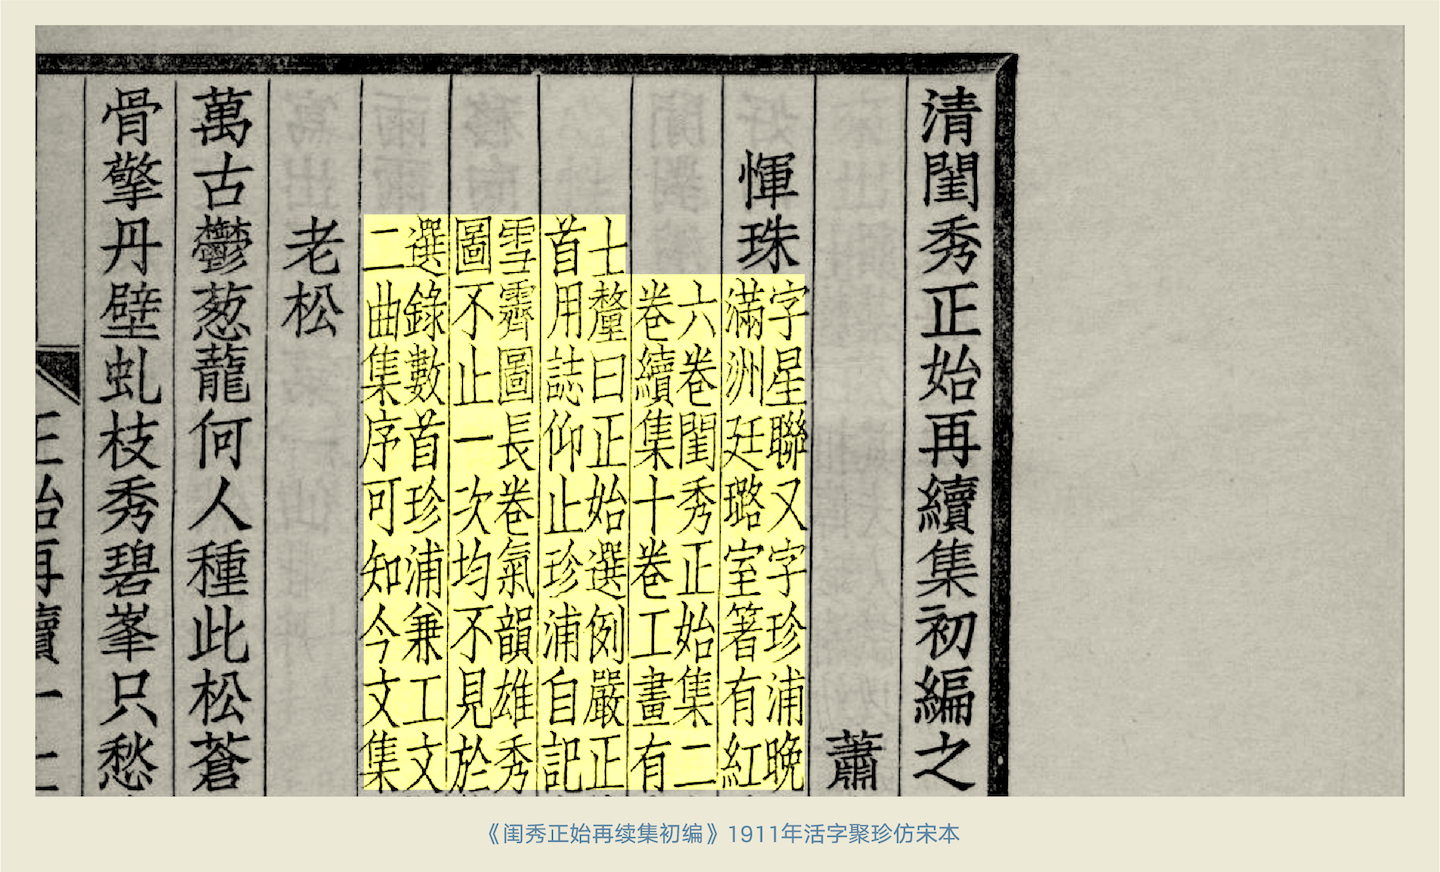 清閨秀正始再續集初編之
蕭
惲珠
字星聯又字珍浦晚
滿洲廷璐室箸有紅
六卷閨秀正始集二
卷續集十卷工畫有
士釐曰正始選例嚴正
首用誌仰止珍浦自記
雪霽圖長卷氣韻雄秀
圖不止一次均不見於
選錄數首珍浦兼工文
二曲集序可知今文集
老松
萬古鬱葱蘢何人種此松蒼
骨擎丹壁虬枝秀碧峯只愁
《闺秀正始再续集初编》1911年活字聚珍仿宋本